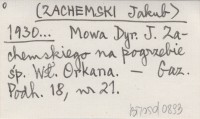 (ZACHEMSKI Jakub)
1930... Mowa Dyr. J. Za-
chemskiego na pogrzebie
śp. Wł. Orkana. — Gaz.
Podh. 18, nr 21.